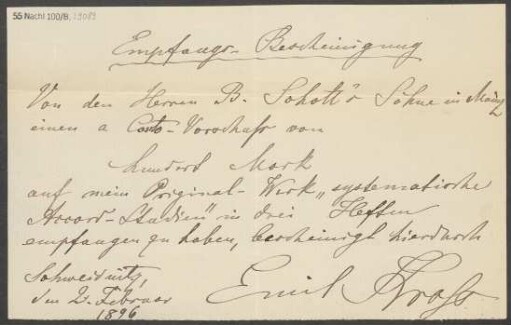 55 Nachl 100/B,
Empfangs-Bescheinigung
Von den Herren B. Schott's Söhne in Mainz
einen a Conto-Vorschuß von
hundert Mark
auf mein Original-Werk „systematische
Accord-Studien" in drei Heften
empfangen zu haben, bescheinigt hierdurch
Schweidnitz,
den 2. Februar
1896
Emil Kross